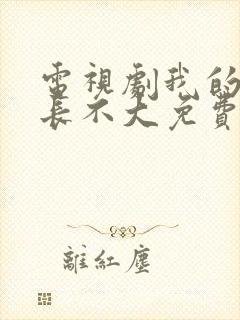 電視劇我的
長不大免費
離紅塵